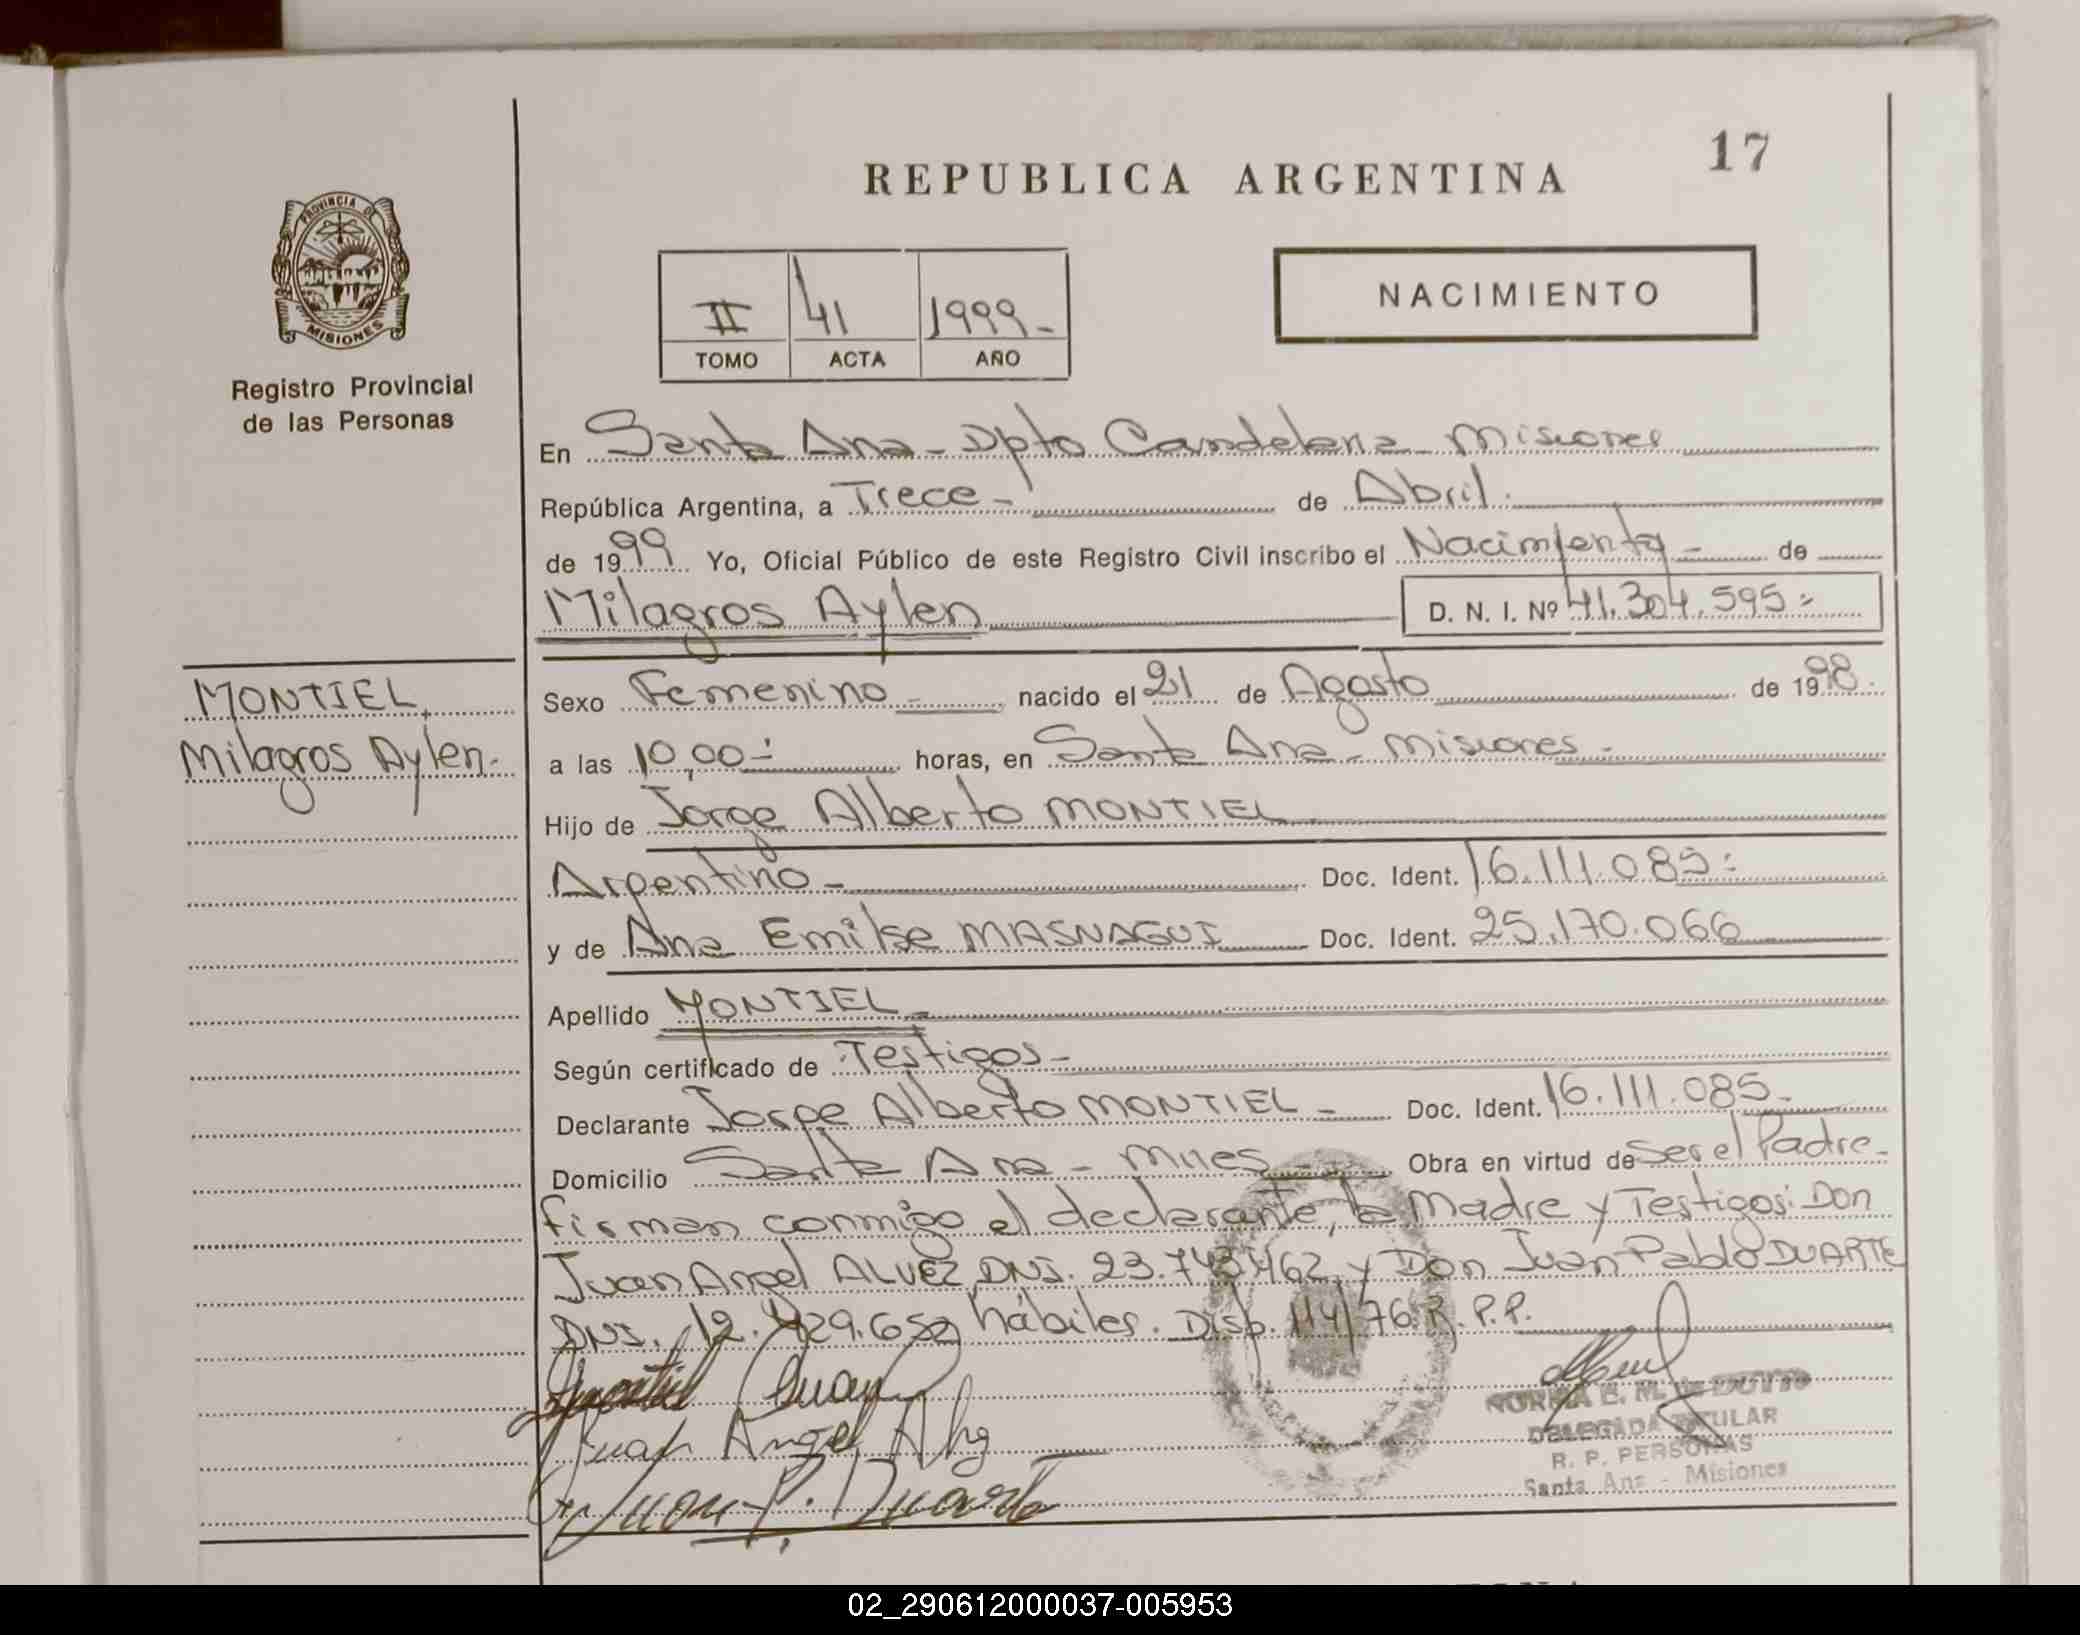 17
REPUBLICA ARGENTINA
PROVINCIA DE
MISIONES
Registro Provincial
de las Personas
II 41 1999-
TOMO ACTA AÑO
NACIMIENTO
En Santa Ana - Dpto Candelaria - Misiones
República Argentina, a Trece - de Abril.
de 1999 Yo, Oficial Público de este Registro Civil inscribo el Nacimiento - de
Milagros Aylen D. N. I. Nº 41.304.595.-
MONTIEL,
Milagros Aylen.
Sexo Femenino nacido el 21 de Agosto de 1998.
a las 10,00.- horas, en Santa Ana - Misiones -
Hijo de Jorge Alberto MONTIEL
Argentino - Doc. Ident. 16.111.085.-
y de Ana Emilse MASNAGUI Doc. Ident. 25.170.066
Apellido MONTIEL -
Según certificado de Testigos -
Declarante Jorge Alberto MONTIEL - Doc. Ident. 16.111.085.-
Domicilio Santa Ana - Mnes - Obra en virtud de Ser el Padre -
firman conmigo el declarante, la Madre y Testigos: Don
Juan Angel ALVEZ, DNI. 23.743.462, y Don Juan Pablo DUARTE
DNI. 12.429.652, hábiles. Disp. 114/76 R.P.P.
Juan Angel
Juan P. Duarte
NORMA E. M. de DUTTO
DELEGADA TITULAR
R. P. PERSONAS
Santa Ana - Misiones
02_290612000037-005953